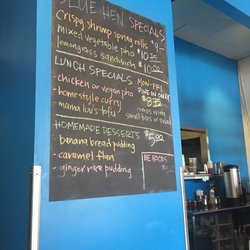 BLUE HEN SPECIALS
crispy shrimp spring rolls
mixed vegetable pho $10.00
lemongrass sandwich $10.00
LUNCH SPECIALS MON-FRI
DINE IN ONLY
• chicken or vegan pho $8.95
• homestyle curry comes with
• mama luu's tofu small tofu or salad
HOMEMADE DESSERTS $5.00
• banana bread pudding
• caramel flan
• ginger rice pudding
BE GOODS